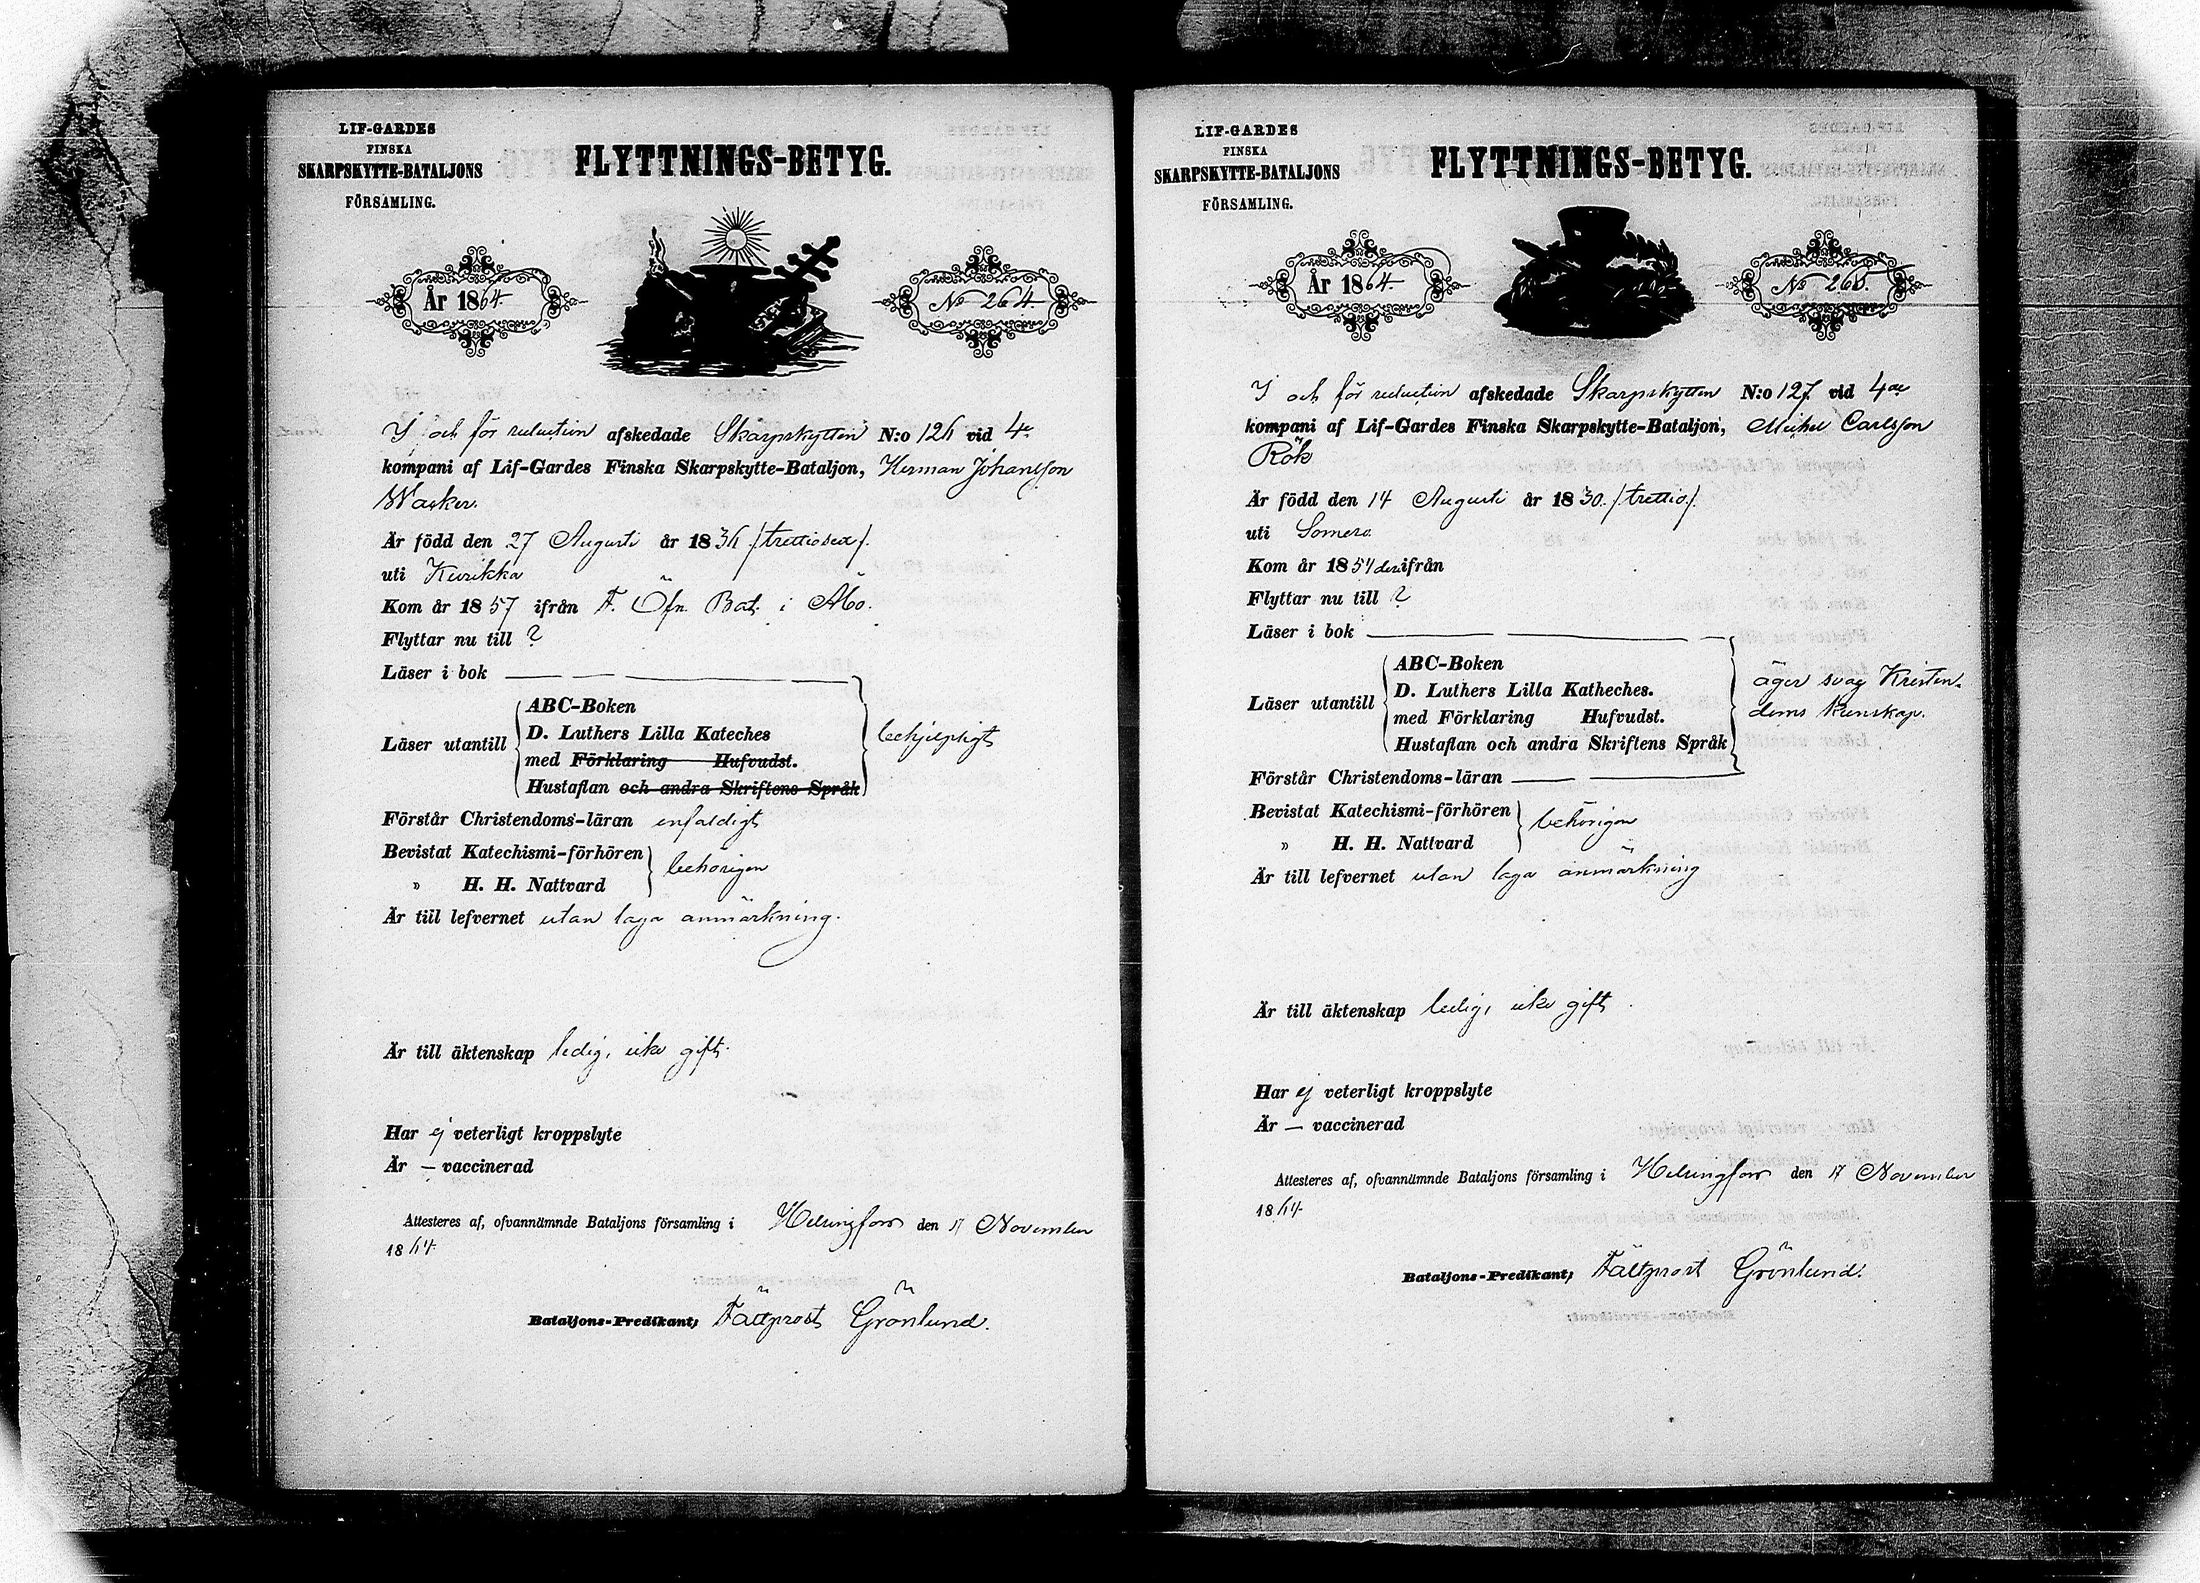 LIF-GARDES
FINSKA
SKARPSKYTTE-BATALJONS
FÖRSAMLING.
FLYTTNINGS-BETYG.
År 1864
No 264
I och för reduction afskedade Skarpskytten N:o 126 vid 4e
kompani af Lif-Gardes Finska Skarpskytte-Bataljon, Herman Johansson
Wasker.
Är född den 27 Augusti år 1836 /trettiosex/.
uti Kurikka
Kom år 1857 ifrån F. Öfn. Bat. i Åbo.
Flyttar nu till ?
Läser i bok
ABC-Boken
D. Luthers Lilla Kateches
Läser utantill
behjelpligt
med Förklaring Hufvudst.
Hustaflan och andra Skriftens Språk
Förstår Christendoms-läran enfaldigt
Bevistat Katechismi-förhören
behörigen
» H. H. Nattvard
Är till lefvernet utan laga anmärkning.
Är till äktenskap ledig, icke gift.
Har ej veterligt kroppslyte
Är — vaccinerad
Attesteres af, ofvannämnde Bataljons församling i Helsingfors den 17 November
1864.
Bataljons-Predikant; Fältprost Grönlund.
LIF-GARDES
FINSKA
SKARPSKYTTE-BATALJONS
FÖRSAMLING.
FLYTTNINGS-BETYG.
År 1864
No 265.
I och för reduction afskedade Skarpskytten N:o 127 vid 4de
kompani af Lif-Gardes Finska Skarpskytte-Bataljon, Michel Carlsson
Rök
Är född den 14 Augusti år 1830. /trettio/.
uti Somero
Kom år 1857 derifrån
Flyttar nu till ?
Läser i bok
ABC-Boken
D. Luthers Lilla Katheches.
Läser utantill
äger svag Kristen-
doms kunskap.
med Förklaring Hufvudst.
Hustaflan och andra Skriftens Språk
Förstår Christendoms-läran
Bevistat Katechismi-förhören
behörigen
» H. H. Nattvard
Är till lefvernet utan laga anmärkning
Är till äktenskap ledig, icke gift
Har ej veterligt kroppslyte
Är — vaccinerad
Attesteres af, ofvannämnde Bataljons församling i Helsingfors den 17 November
1864.
Bataljons-Predikant; Fältprost Grönlund.